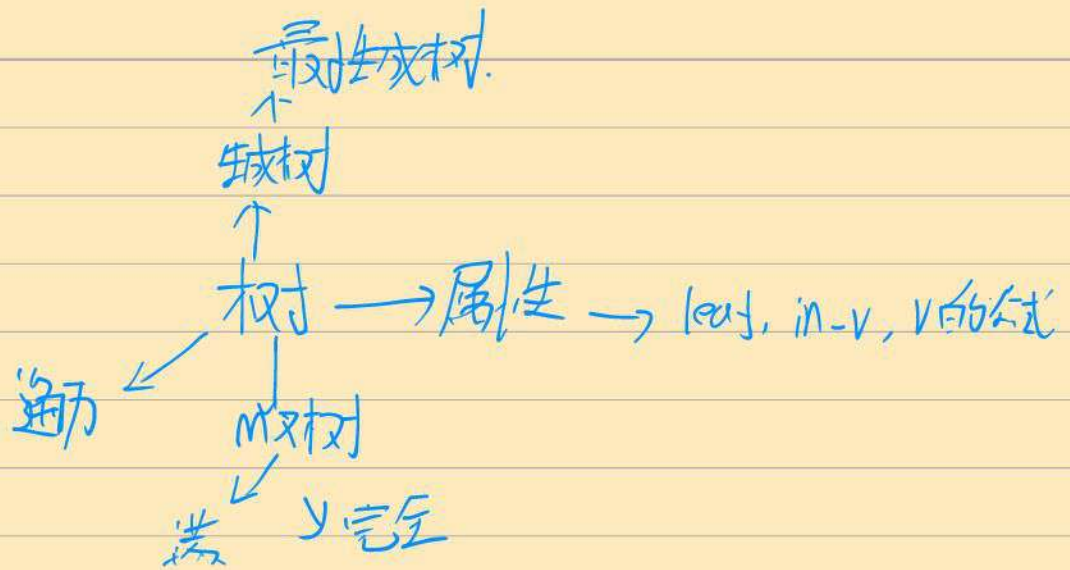 最小生成树.
生成树
树 → 属性 → leaf, in-v, v的公式
遍历
m叉树
满 完全